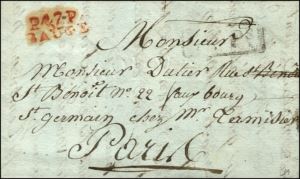 P.47.P
BAUGÉ
Monsieur
Monsieur Dutier Rue St Benoit
St Benoît No 22 faux bourg
St germain chez Mr Tamisier
Paris